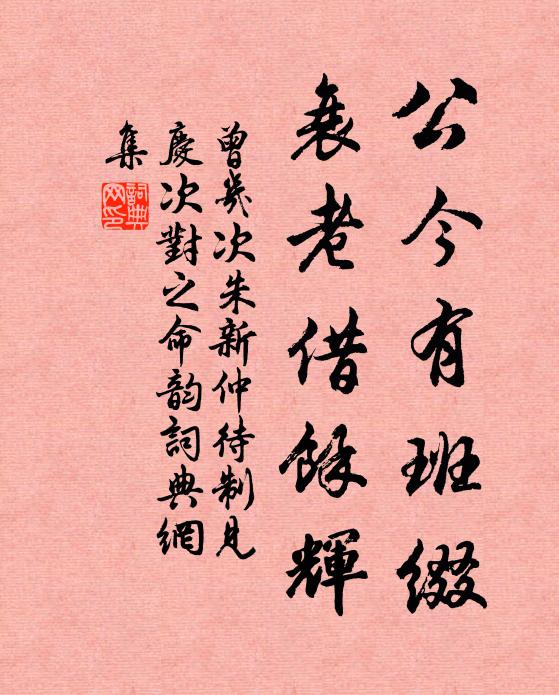 公今有班綴
衰老借餘輝
曾幾次朱新仲待制見
慶次對之命韵詞典網
集
詞典
网印